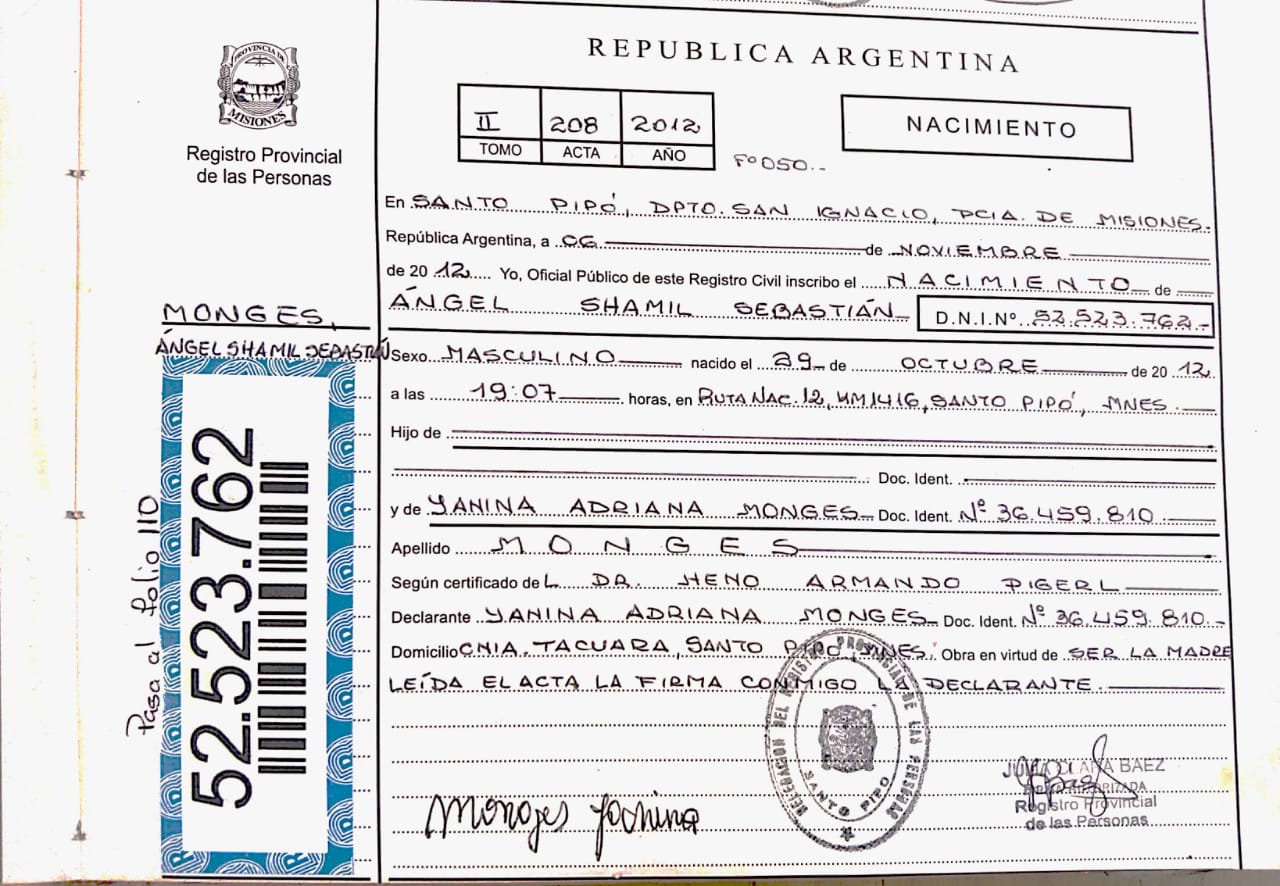 PROVINCIA DE
MISIONES
Registro Provincial
de las Personas
REPUBLICA ARGENTINA
II 208 2012
TOMO ACTA AÑO
Fº 050..
NACIMIENTO
En SANTO PIPÓ, DPTO. SAN IGNACIO, PCIA. DE MISIONES.
República Argentina, a 06 de NOVIEMBRE
de 2012 Yo, Oficial Público de este Registro Civil inscribo el NACIMIENTO de
ÁNGEL SHAMIL SEBASTIÁN D.N.I.Nº 52.523.762.-
MONGES,
ÁNGEL SHAMIL SEBASTIÁN
Sexo MASCULINO nacido el 29 de OCTUBRE de 2012.
a las 19:07 horas, en RUTA NAC. 12, KM 1416, SANTO PIPÓ, MNES.
Hijo de
Doc. Ident.
y de YANINA ADRIANA MONGES Doc. Ident. Nº 36.459.810
Apellido MONGES
Según certificado del DR. HENO ARMANDO PIGERL
Declarante YANINA ADRIANA MONGES Doc. Ident. Nº 36.459.810.-
Domicilio CNIA. TACUARA, SANTO PIPÓ, MNES. Obra en virtud de SER LA MADRE
LEÍDA EL ACTA LA FIRMA CONMIGO LA DECLARANTE.
Pasa al folio 110
52.523.762
DELEGACION DEL REGISTRO PROVINCIAL DE LAS PERSONAS
SANTO PIPO
Monges Yanina
BAEZ
Registro Provincial
de las Personas